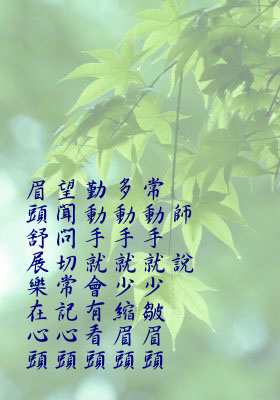 師說
常動手就少皺眉頭
多動手就少縮眉頭
勤動手就會有看頭
望聞問切常記心頭
眉頭舒展樂在心頭